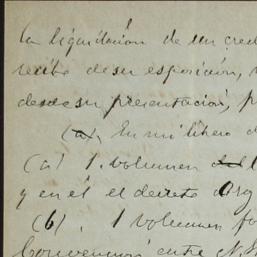 la liquidación de un cred
recibo de su esposición,
desde su presentación, p
(a). En mi libro d
(a) 1. volumen
y en él el decreto Org
(b). 1 volumen fo
Convención entre